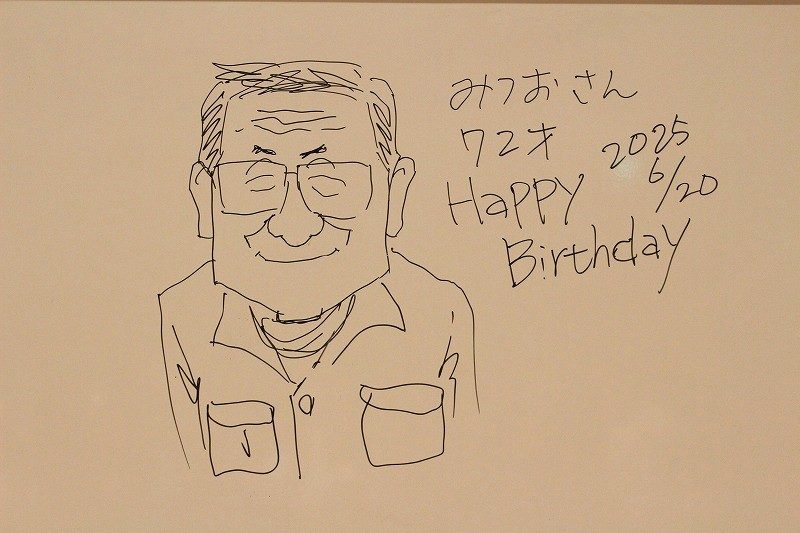 みつおさん
72才
2025
6/20
Happy
Birthday